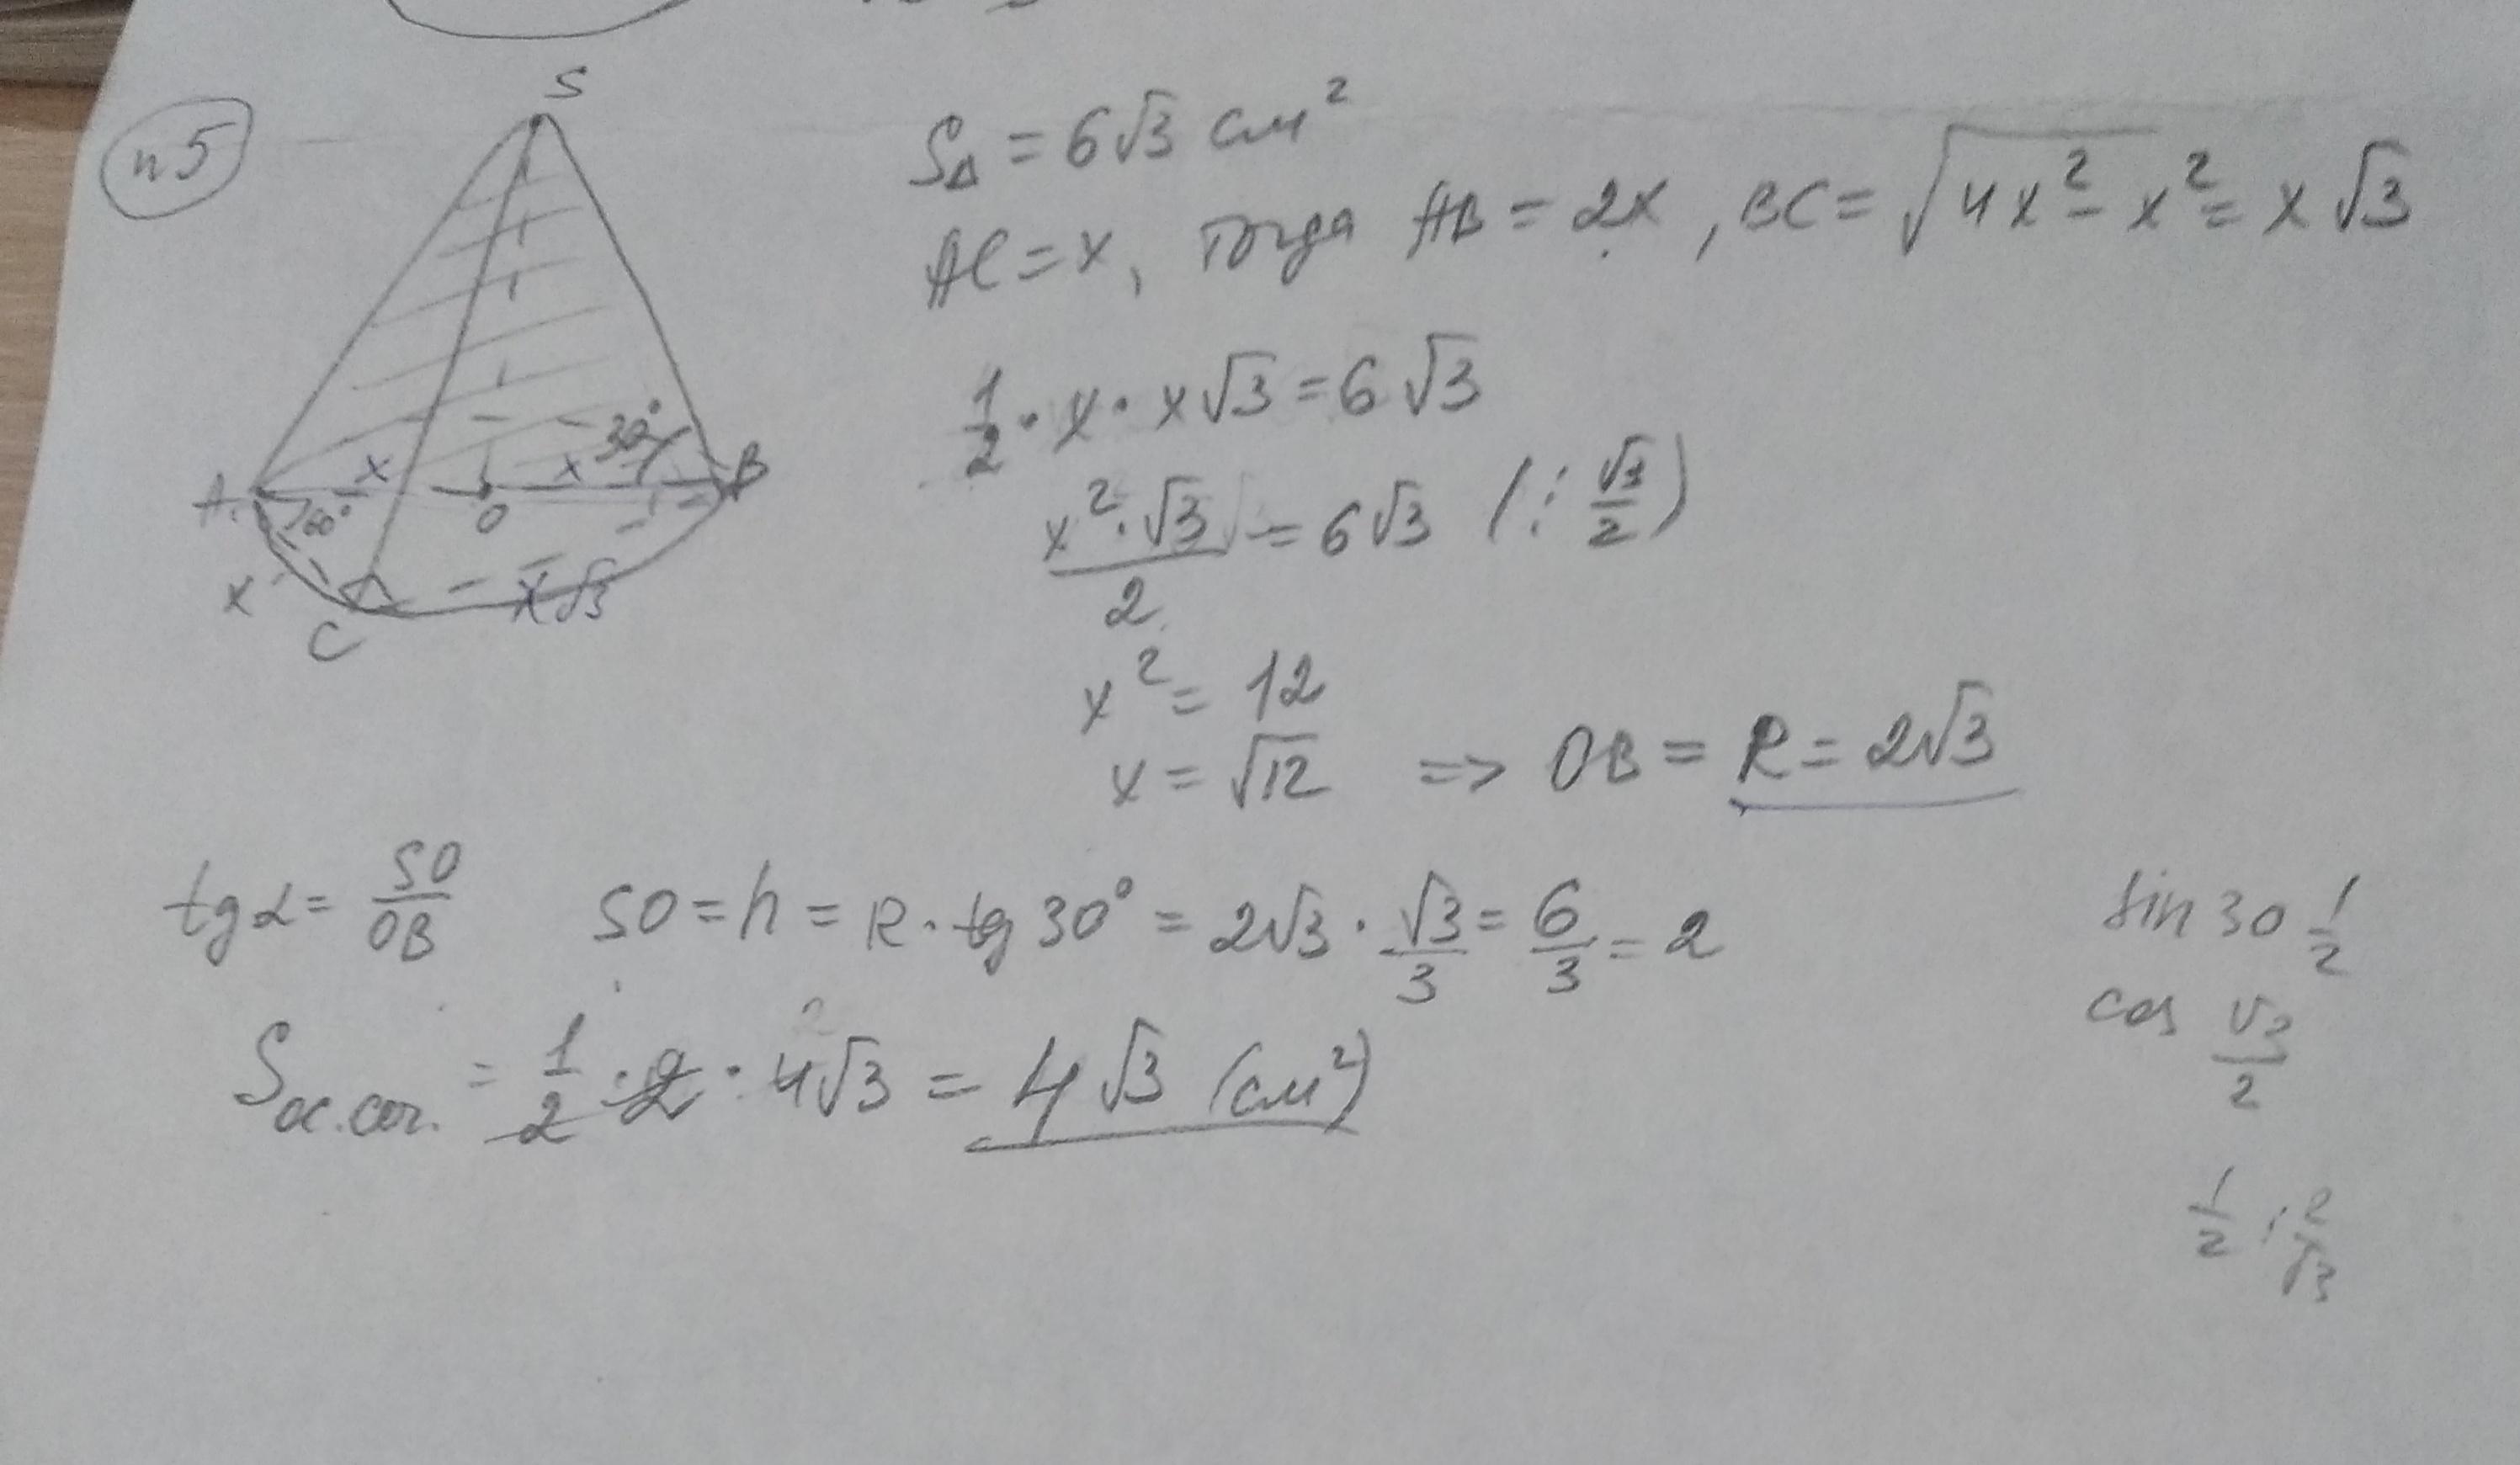 n5
S
A
x
O
x
30°
B
60°
x
C
x√3
S△ = 6√3 см²
AC = x, тогда AB = 2x, BC = √4x² - x² = x√3
1/2 · x · x√3 = 6√3
x² · √3 / 2 = 6√3 (: √3/2)
x² = 12
x = √12 => OB = R = 2√3
tg α = SO/OB SO = h = R · tg 30° = 2√3 · √3/3 = 6/3 = 2
Sос.сеч. = 1/2 · 2 · 4√3 = 4√3 (см²)
sin 30 1/2
cos √3/2
1/2 : 2/√3